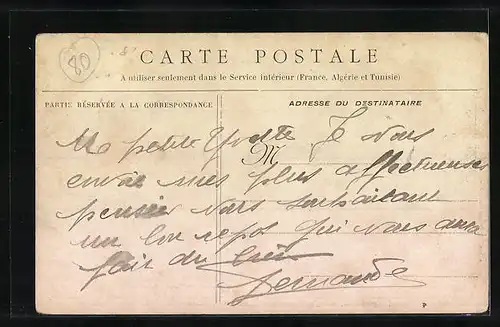 80
CARTE POSTALE
A utiliser seulement dans le Service intérieur (France, Algérie et Tunisie)
PARTIE RÉSERVÉE A LA CORRESPONDANCE
ADRESSE DU DESTINATAIRE
M
Ma petite Yvette Je vous
envoie mes plus affectueuses
pensées vous souhaitant
un bon repos qui vous aura
fait du bien
Fernande